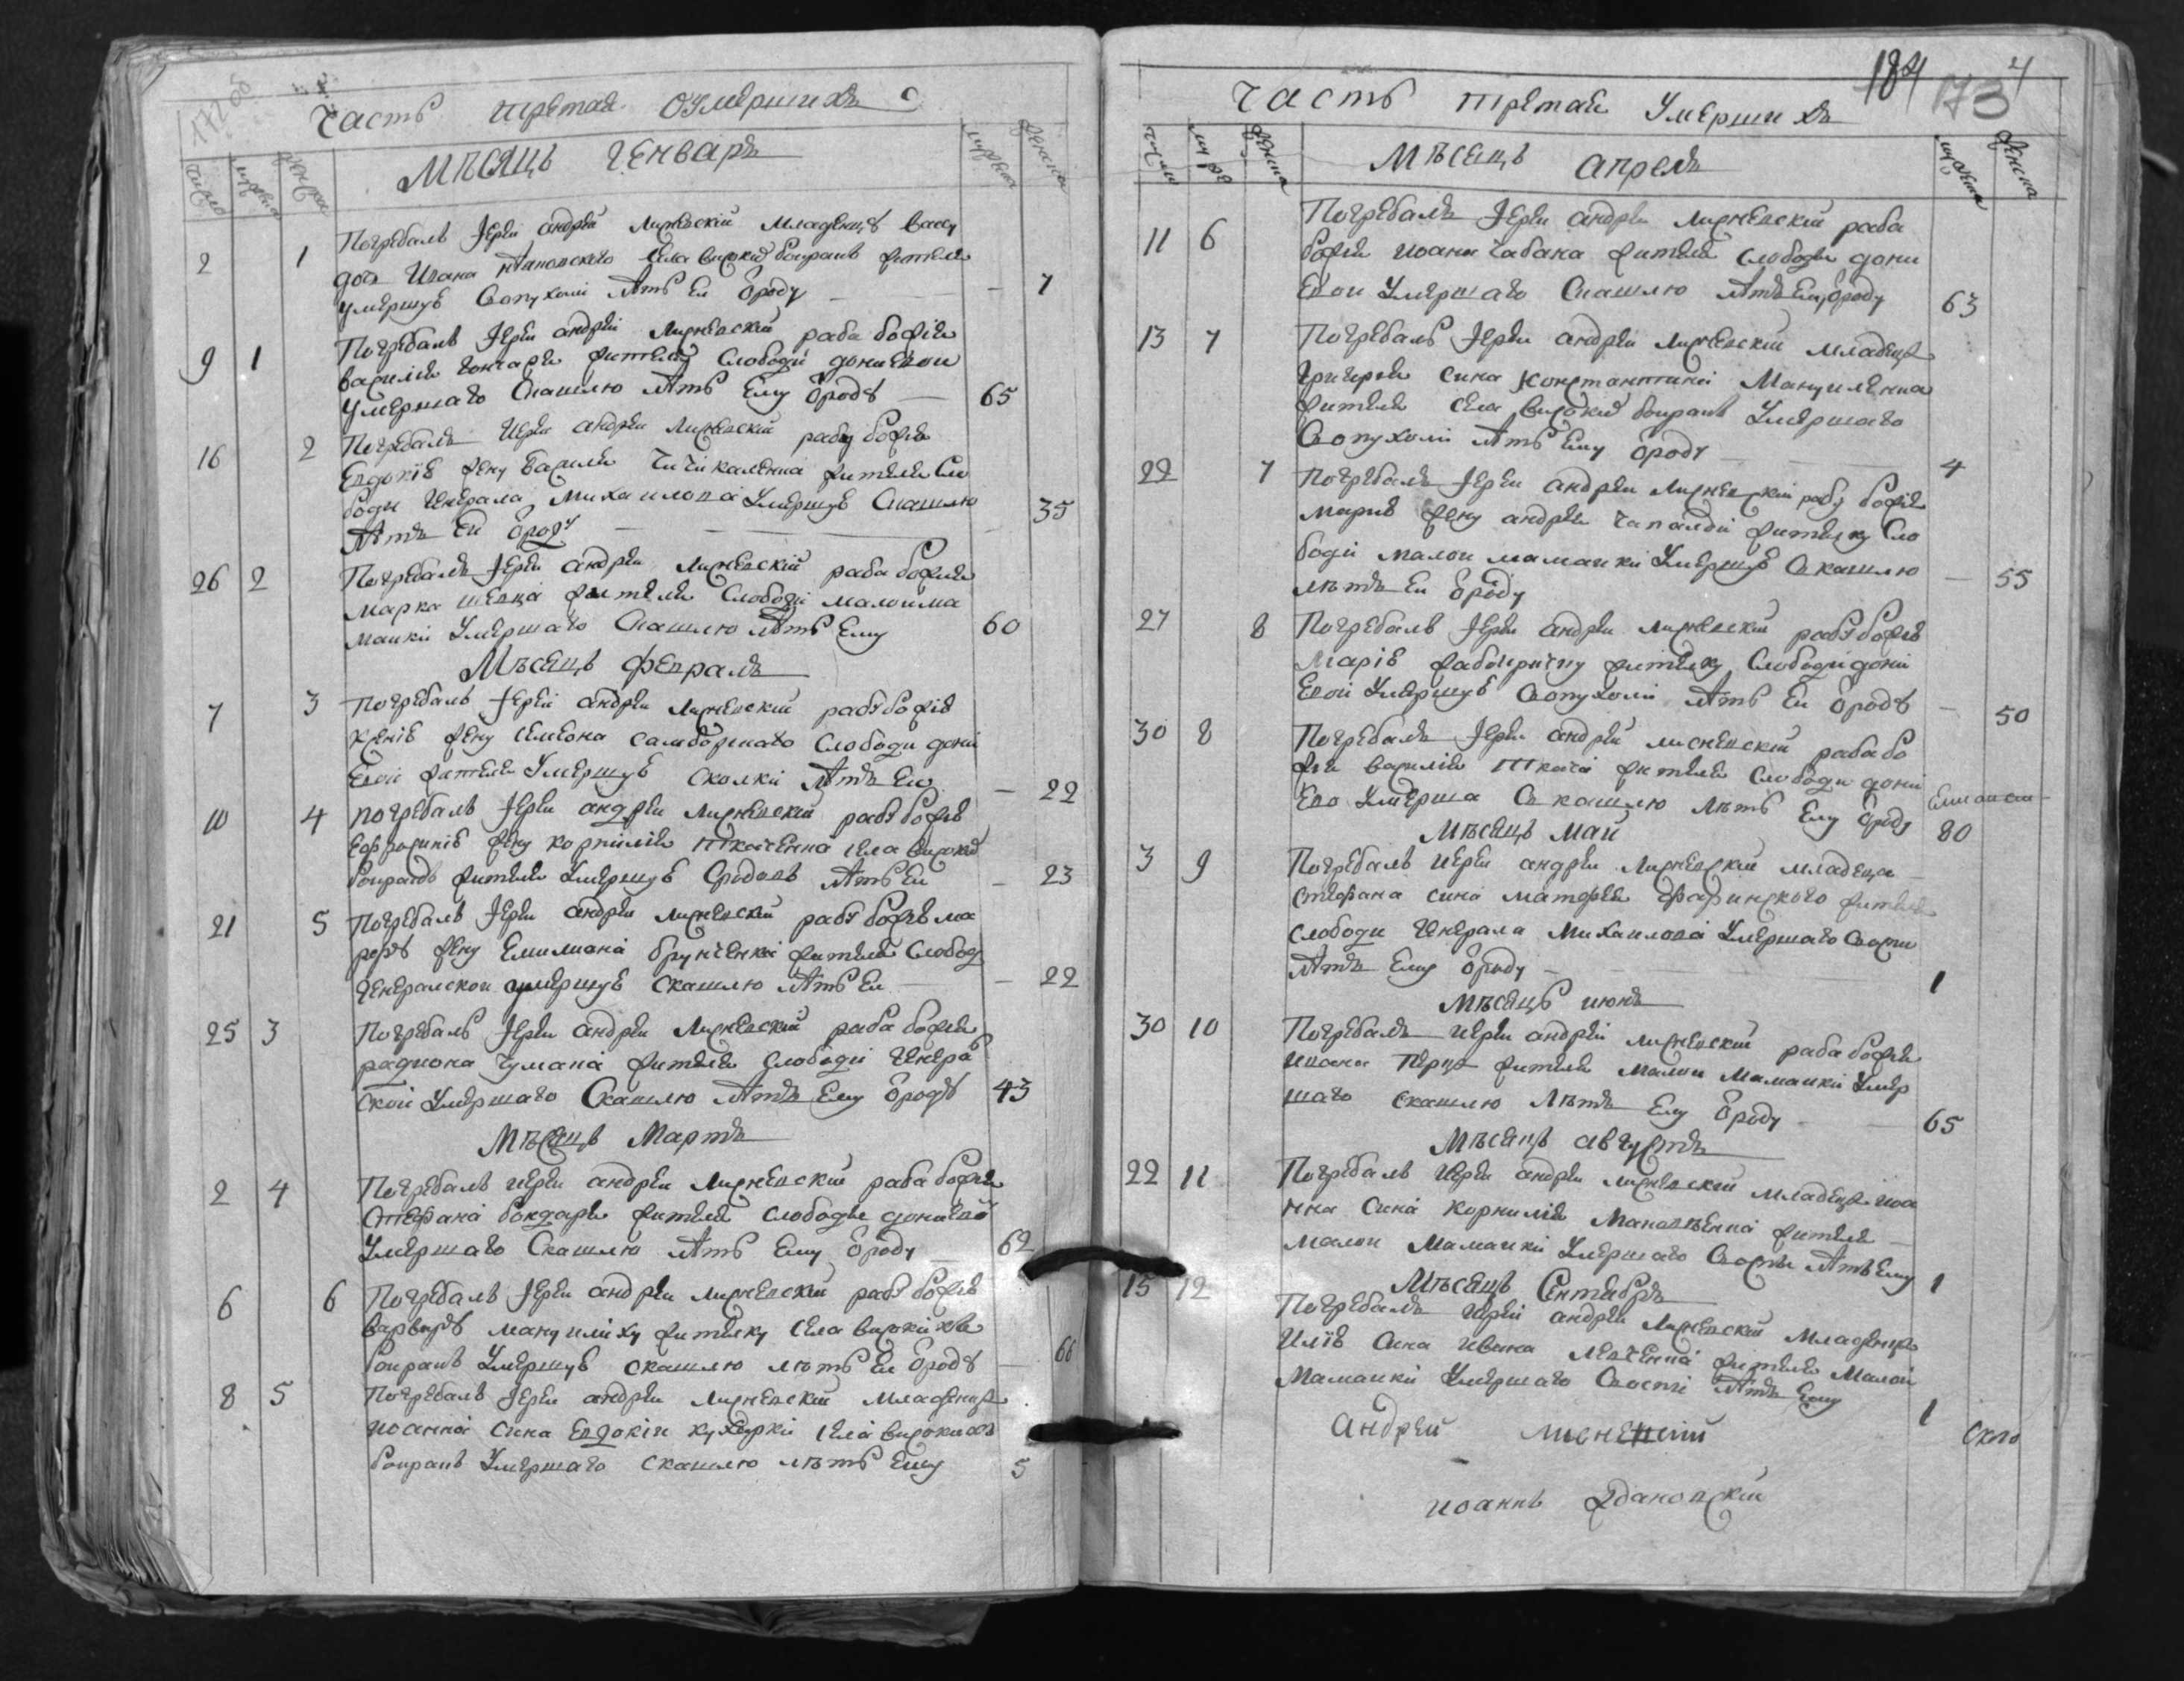 Часть третая Оумершихъ
число мужеска женска
Мѣсяць Генварь
мужеска женска
2 1 Погребалъ Іерей андрей Лисневскій младенца Васу
дочь Ивана села високих боиракъ жителя
умершую Сопухоли лѣтъ Еи Отроду 7
9 1 Погребалъ Іерей андрей Лисневскій раба божія
василія гончаря жителя Слободи дониевои
умершаго Скашлю лѣтъ Ему Отроду 65
16 2 Погребалъ Иерей андрей Лисневскій рабу божію
Евдокію жену василя Чичикаленка жителя Сло
боди Генерала Михаилова Умершую Скашлю
лѣтъ Еи Отроду 35
26 2 Погребалъ Іерей андрей Лисневскій раба божия
марка шевца жителя Слободи малои ма
маики Умершаго Скашлю лѣтъ Ему 60
Мѣсяць февраль
7 3 Погребалъ Іерей андрей Лисневский рабу божію
жену семиона Слободи дони
евои жителя Умершую Сколки лѣтъ Еи 22
10 4 погребалъ Іерей андрей Лисневский рабу божію
Ефросинію жену корнилия Ткаченка села високих
боиракъ жителя Умершую Сродовъ лѣтъ Еи 23
21 5 Погребалъ Іерей андрей Лисневский рабу божію ма
жену Емилиана жителя Слободи
Генералскои умершую Скашлю лѣтъ Еи 22
25 3 Погребалъ Іерей андрей Лисневский раба божия
радиона Чумака жителя Слободи Генерал
ской Умершаго Скашлю лѣтъ Ему Отроду 43
Мѣсяць Мартъ
2 4 Погребалъ иерей андрей Лисневский раба божия
Стефана бондаря жителя слободи дониевои
Умершаго Скашлю лѣтъ Ему Отроду 62
6 6 Погребалъ Іерей андрей Лисневский рабу божію
варвару мануилиху жителку села високихъ
боиракъ Умершую Скашлю лѣтъ Еи Отроду 66
8 5 Погребалъ Іерей андрей Лисневский младенца
иоанна сина Евдокіи кухарки села високихъ
боиракъ Умершаго скашлю лѣтъ Ему 5
184 173 4
Часть третая Умершихъ
число женска
Мѣсяць апрель
мужеска женска
11 6 Погребалъ Іерей андрей Лисневский раба
божия иоана чабана жителя Слободи дони
Евои Умершаго Скашлю лѣтъ Ему Отроду 63
13 7 Погребалъ Іерей андрей Лисневский младенца
григория сина константина Мануиленка
жителя села високих боиракъ Умершаго
Сопухоли лѣтъ Ему Отроду 4
22 7 Погребалъ Іерей андрей Лисневский рабу божію
марию жену андрея жителку Сло
боди малои мамаики Умершую Скашлю
лѣтъ Еи Отроду 55
27 8 Погребалъ Іерей андрей Лисневский рабу божію
Марію жителку Слободи дони
Евои Умершую Сопухоли лѣтъ Еи Отроду 50
30 8 Погребалъ Іерей андрей лисневский раба бо
жия василия Ткача жителя Слободи дони
Ево Умерша Скашлю лѣтъ Ему Отроду 80
Мѣсяць Май
3 9 Погребалъ иерей андрей Лисневский младенца
стефана сина матфея жителя
слободи Генерала Михаилова Умершаго Соспи
лѣтъ Ему Отроду 1
Мѣсяць июнь
30 10 Погребалъ иерей андрей лисневский раба божия
ивана перца жителя малои Мамаики Умер
шаго скашлю лѣтъ Ему Отроду 65
Мѣсяць августъ
22 11 Погребалъ Иерей андрей Лисневский младенца иоа
нна Сина корнилия жителя
малои Мамаики Умершаго Соспи лѣтъ Ему 1
Мѣсяць Сентябръ
15 12 Погребалъ Иерей андрей Лисневский младенца
Илію Сина ивана Левченка жителя Малои
Мамаики Умершаго Соспи лѣтъ Ему 1
андрей лисневский
иоаннъ Ждановский